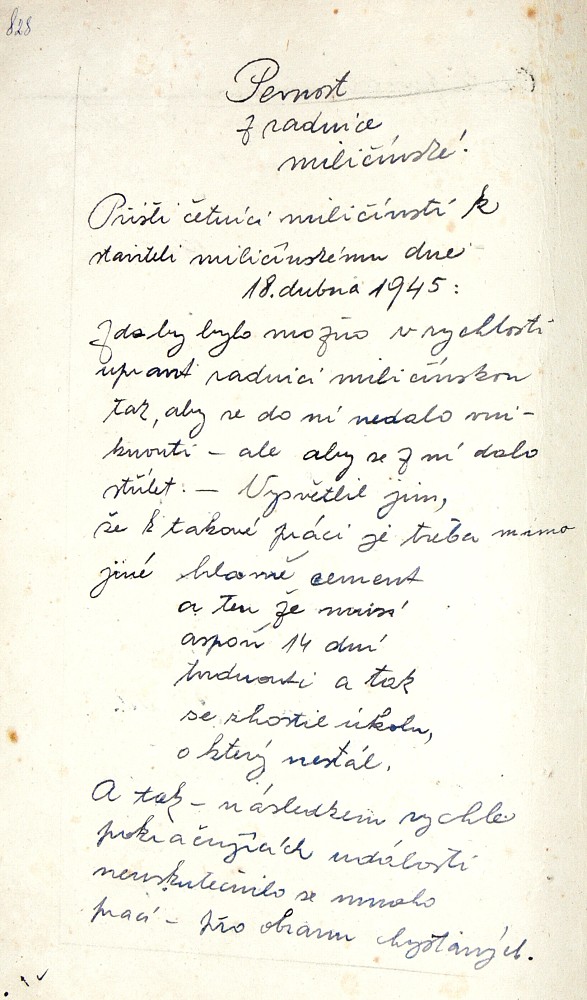 828
Pevnost
z radnice
miličínské!
Přišli četníci miličínští k
staviteli miličínskému dne
18. dubna 1945:
Zda by bylo možno v rychlosti
upravit radnici miličínskou
tak, aby se do ní nedalo vni-
knouti – ale aby se z ní dalo
střílet. – Vysvětlil jim,
že k takové práci je třeba mimo
jiné hlavně cement
a ten že musí
aspoň 14 dní
tvrdnouti a tak
se zhostil úkolu,
o který nestál.
A tak – následkem rychle
pokračujících událostí
neuskutečnilo se mnoho
prací – pro obranu chystaných.